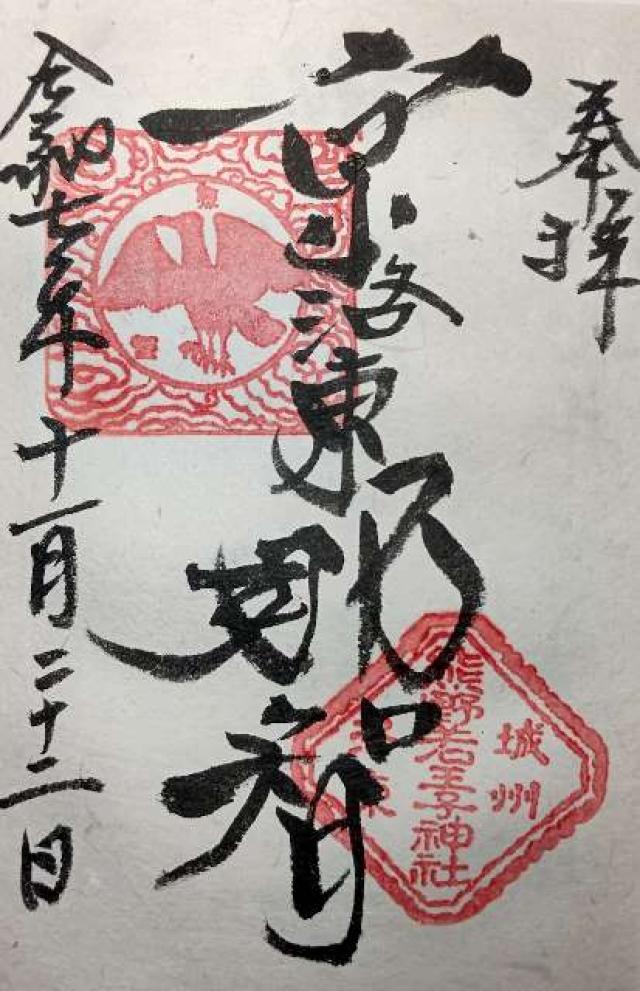 奉拝
京洛東那智
城州
熊野若王子神社
洛東
令和七年十一月二十二日